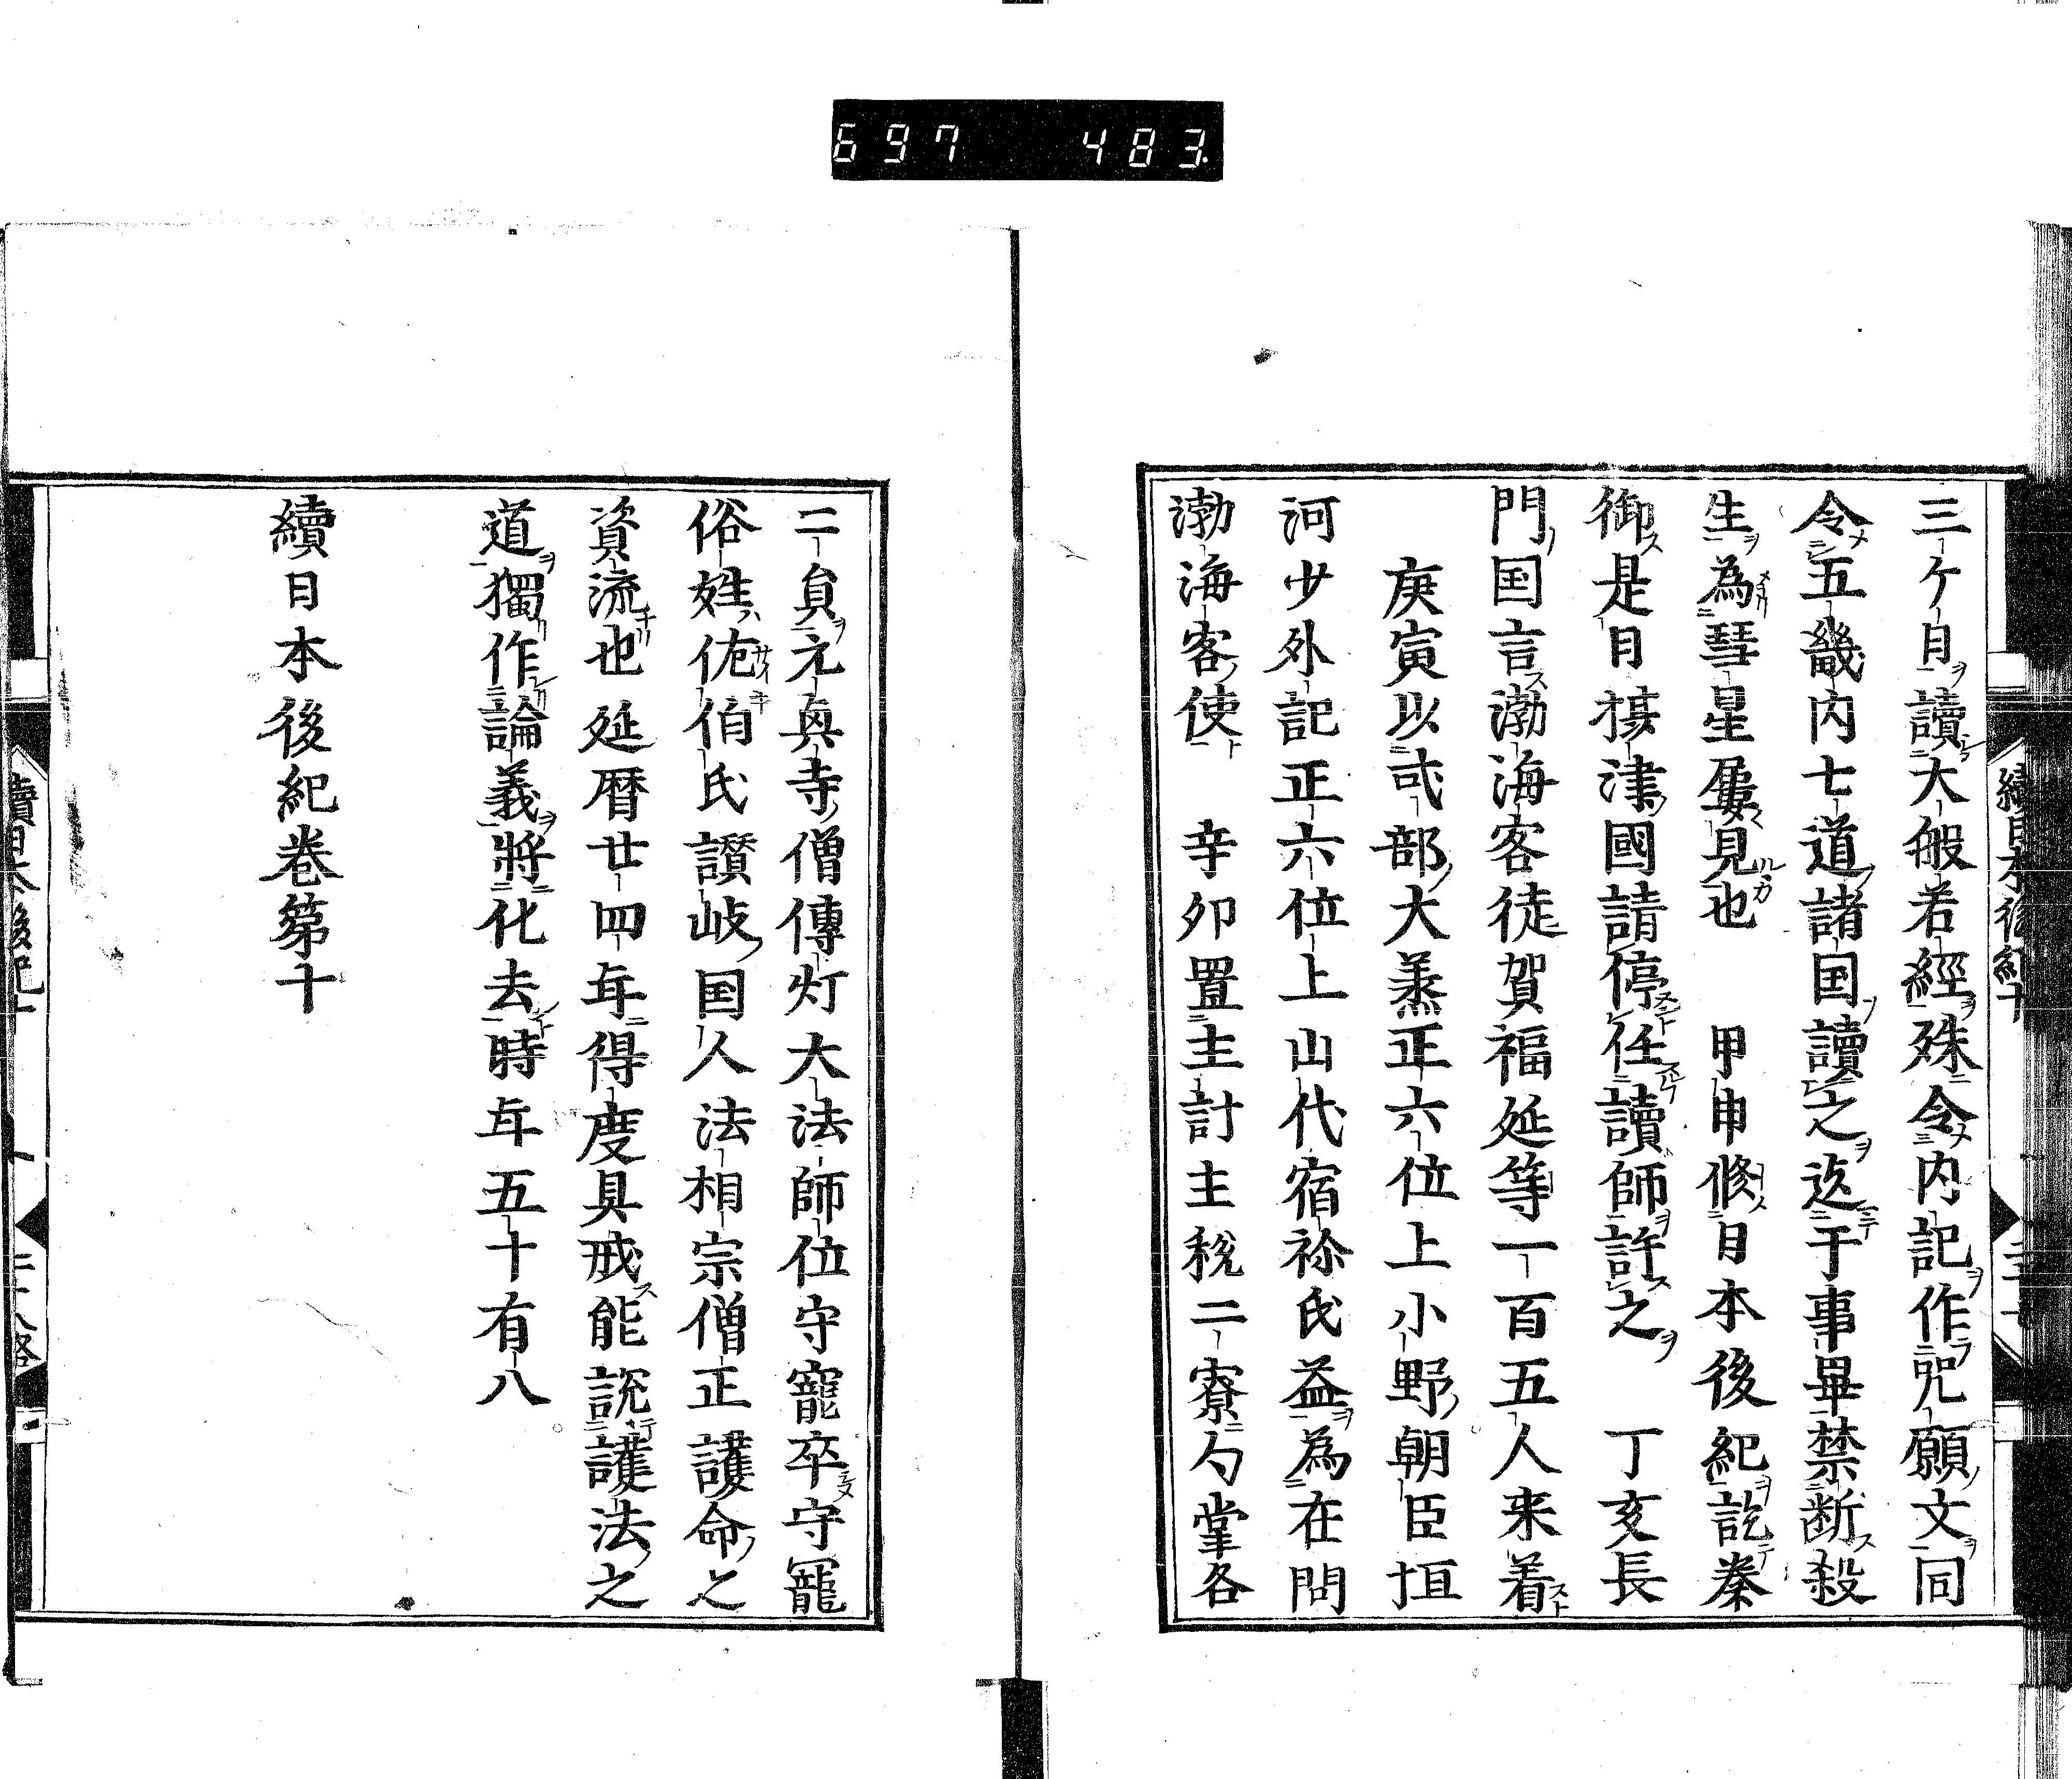 697 483.
三ケ日讀大般若經殊令内記作咒願文同
令五畿内七道諸国讀之迄于事畢禁断殺
生為彗星屢見也 甲申修日本後紀訖奏
御是日摂津國請停任讀師許之 丁亥長
門国言渤海客徒賀福延等一百五人来着
庚寅以式部大蒸正六位上小野朝臣恒
河少外記正六位上山代宿祢氏益為在問
渤海客使 辛卯置主計主税二寮勾掌各
二負元興寺僧傳灯大法師位守寵卒守寵
俗姓佐伯氏讃岐国人法相宗僧正護命之
資流也延暦廿四年得度具戒能説護法之
道獨作論義將化去時年五十有八
續日本後紀巻第十